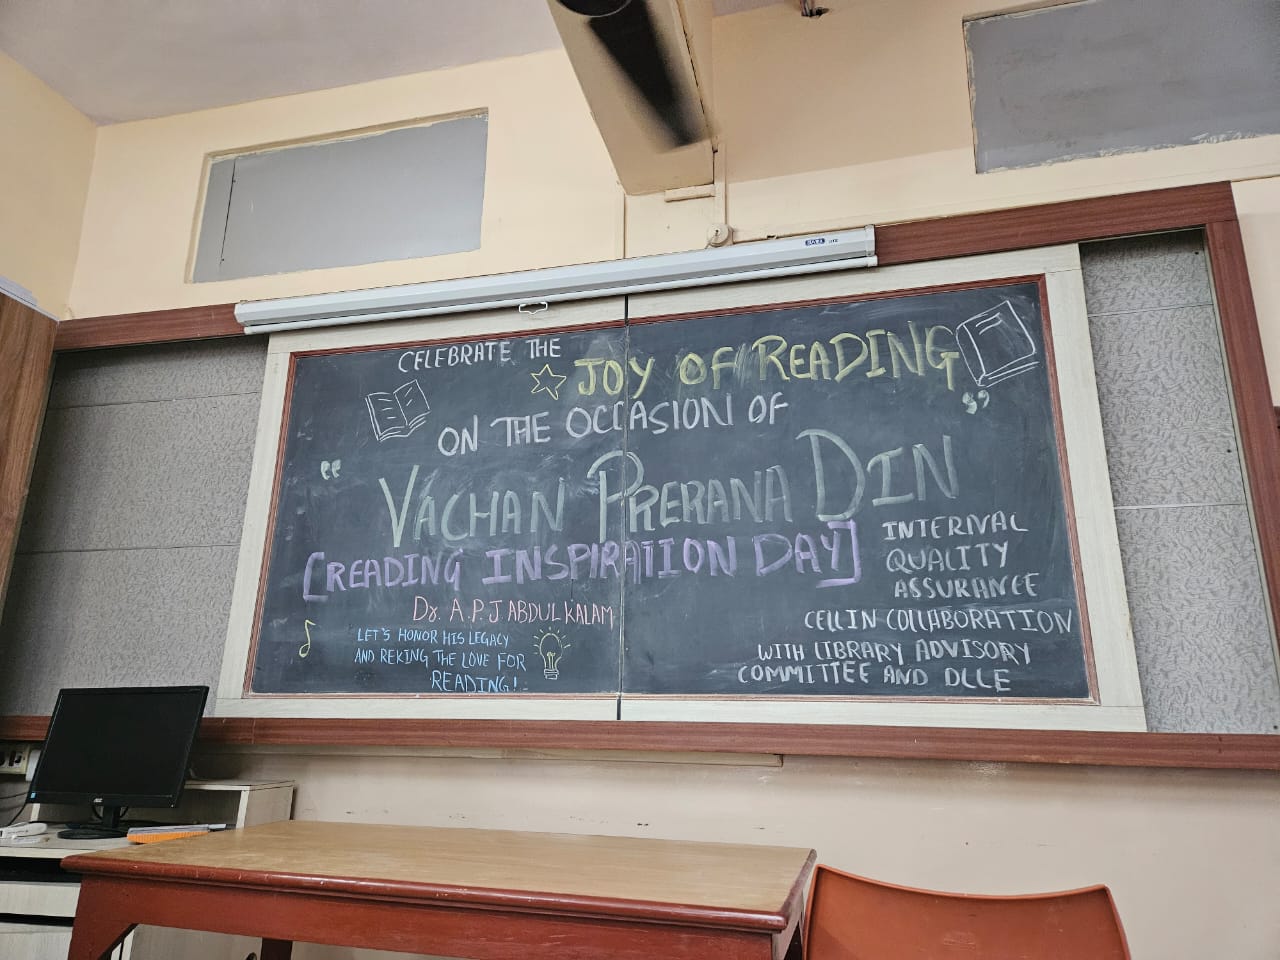 CELEBRATE THE
JOY OF READING
ON THE OCCASION OF
"VACHAN PRERANA DIN"
[READING INSPIRATION DAY]
Dr. A.P.J ABDUL KALAM
LET'S HONOR HIS LEGACY
AND REKING THE LOVE FOR
READING!
INTERNAL
QUALITY
ASSURANCE
CELL IN COLLABORATION
WITH LIBRARY ADVISORY
COMMITTEE AND DLLE